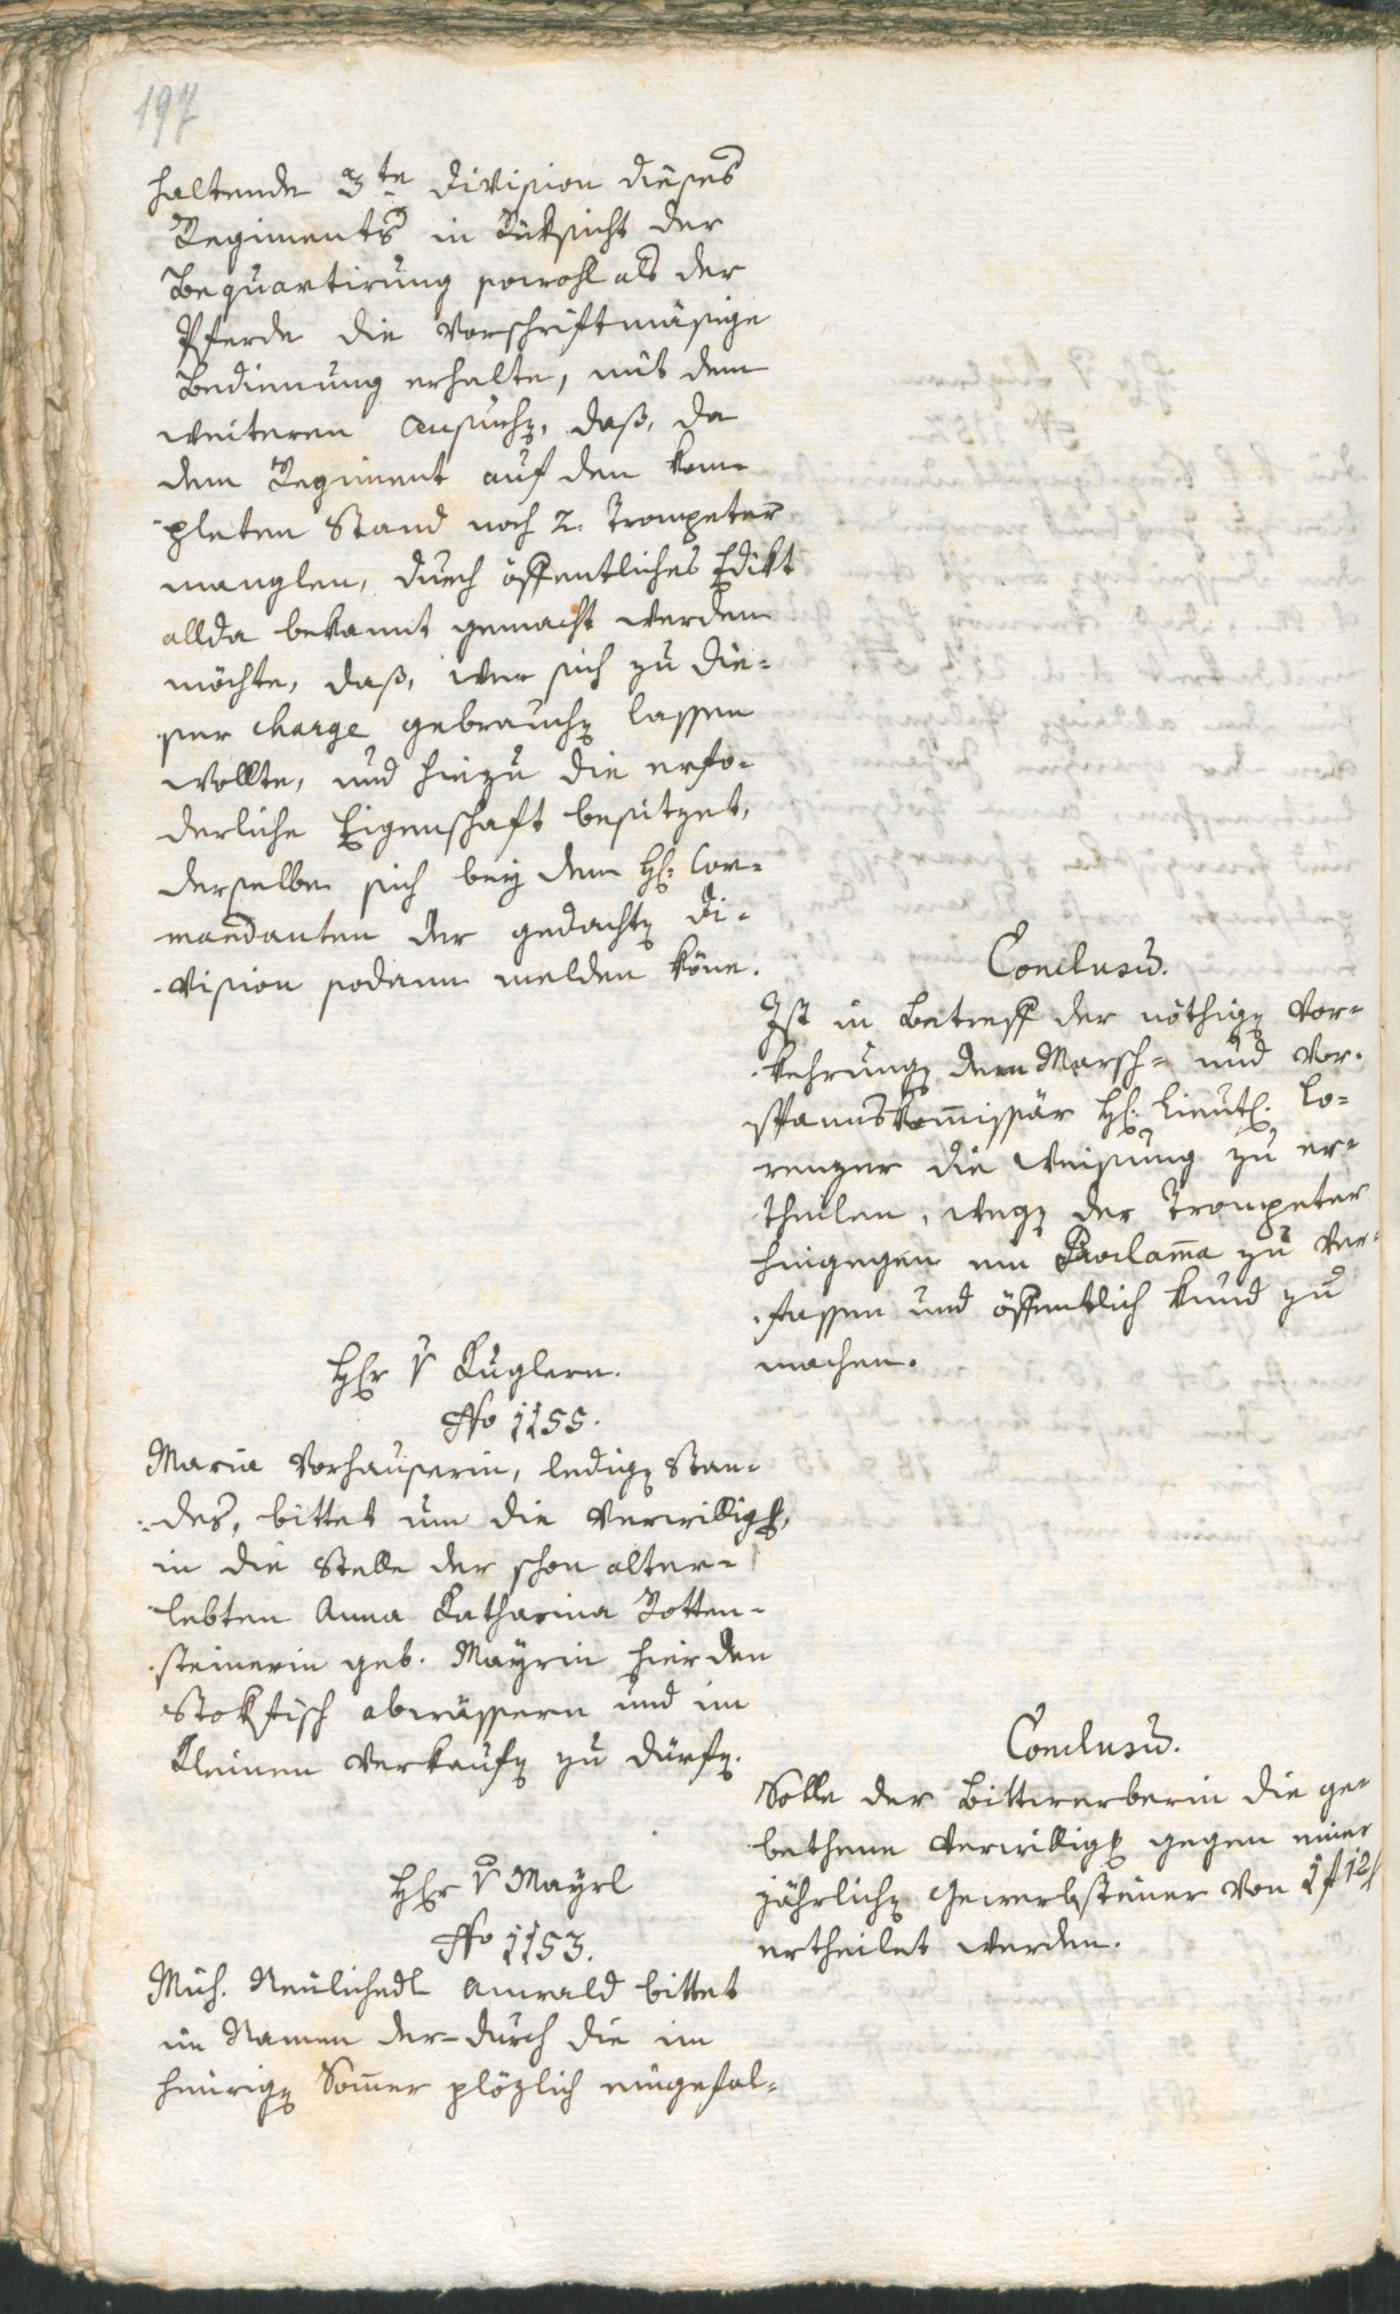 197
haltende 3te Division dieses
Regiments in Rüksicht der
Bequartirung sowohl als der
Pferde die vorschriftmäsige
Bedienung erhalte, mit dem
weiteren Ansuchen, daß, da
dem Regiment auf den kom-
pleten Stand noch 2. Trompeter
manglen, durch öffentliches Edikt
allda bekannt gemacht werden
möchte, daß, wer sich zu die-
ser charge gebrauchen lassen
wollte, und hiezu die erfo-
derliche Eigenschaft besitzet,
derselbe sich bey dem H: Com-
mandanten der gedachten Di-
vision sodann melden köne.
Conclusum.
Ist in Betreff der nöthigen Vor-
kehrungen dem Marsch- und Vor-
spannskom̄issär H: Lieut: Lo-
renzer die Weisung zu er-
theilen, wegen der Trompeter
hingegen ein Proclam̄a zu ver-
fassen und öffentlich kund zu
machen.
Herr v Kuglern.
No 1155.
Maria Vorhauserin, ledigen Stan-
des, bittet um die Verwilligung,
in die Stelle der schon alter-
lebten Anna Katharina Rotten-
steinerin geb. Mayrin hier den
Stokfisch abwässern und im
Kleinen verkaufen zu dürfen.
Conclusum.
Solle der Bittwerberin die ge-
bethene Verwilligung gegen einer
jährlichen Gewerbsteuer von 1 f 12
ertheilet werden.
Herr v Mayrl
No 1153.
Mich. Neulichedl Anwald bittet
im Namen der-durch die im
heurigen Som̄er plözlich eingefal-